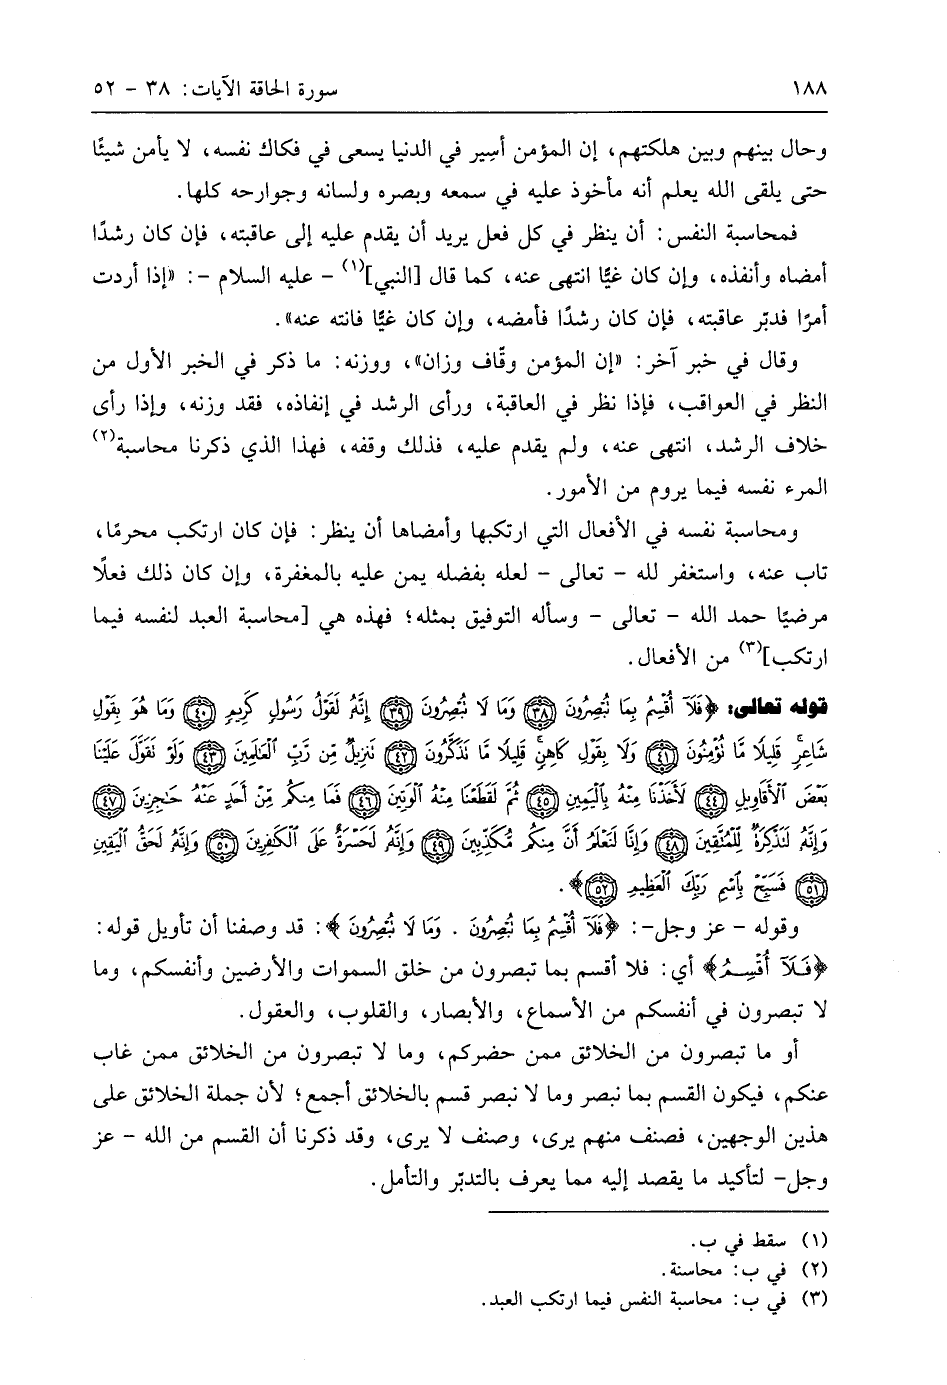 ١٨٨ سورة الحاقة الآيات: ٣٨ - ٥٢
وحال بينهم وبين هلكتهم، إن المؤمن أسِير في الدنيا يسعى في فكاك نفسه، لا يأمن شيئًا
حتى يلقى الله يعلم أنه مأخوذ عليه في سمعه وبصره ولسانه وجوارحه كلها.
فمحاسبة النفس: أن ينظر في كل فعل يريد أن يقدم عليه إلى عاقبته، فإن كان رشدًا
أمضاه وأنفذه، وإن كان غيًّا انتهى عنه، كما قال [النبي](١) - عليه السلام -: «إذا أردت
أمرًا فدبّر عاقبته، فإن كان رشدًا فأمضه، وإن كان غيًّا فانته عنه».
وقال في خبر آخر: «إن المؤمن وقّاف وزان»، ووزنه: ما ذكر في الخبر الأول من
النظر في العواقب، فإذا نظر في العاقبة، ورأى الرشد في إنفاذه، فقد وزنه، وإذا رأى
خلاف الرشد، انتهى عنه، ولم يقدم عليه، فذلك وقفه، فهذا الذي ذكرنا محاسبة(٢)
المرء نفسه فيما يروم من الأمور.
ومحاسبة نفسه في الأفعال التي ارتكبها وأمضاها أن ينظر: فإن كان ارتكب محرمًا،
تاب عنه، واستغفر لله - تعالى - لعله بفضله يمن عليه بالمغفرة، وإن كان ذلك فعلًا
مرضيًا حمد الله - تعالى - وسأله التوفيق بمثله؛ فهذه هي [محاسبة العبد لنفسه فيما
ارتكب](٣) من الأفعال.
قوله تعالى: ﴿فَلَآ أُقْسِمُ بِمَا تُبْصِرُونَ ۝٣٨ وَمَا لَا تُبْصِرُونَ ۝٣٩ إِنَّهُۥ لَقَوْلُ رَسُولٍ كَرِيمٍ ۝٤٠ وَمَا هُوَ بِقَوْلِ
شَاعِرٍۚ قَلِيلًا مَّا تُؤْمِنُونَ ۝٤١ وَلَا بِقَوْلِ كَاهِنٍۚ قَلِيلًا مَّا تَذَكَّرُونَ ۝٤٢ تَنزِيلٌ مِّن رَّبِّ ٱلْعَٰلَمِينَ ۝٤٣ وَلَوْ تَقَوَّلَ عَلَيْنَا
بَعْضَ ٱلْأَقَاوِيلِ ۝٤٤ لَأَخَذْنَا مِنْهُ بِٱلْيَمِينِ ۝٤٥ ثُمَّ لَقَطَعْنَا مِنْهُ ٱلْوَتِينَ ۝٤٦ فَمَا مِنكُم مِّنْ أَحَدٍ عَنْهُ حَٰجِزِينَ ۝٤٧
وَإِنَّهُۥ لَتَذْكِرَةٌ لِّلْمُتَّقِينَ ۝٤٨ وَإِنَّا لَنَعْلَمُ أَنَّ مِنكُم مُّكَذِّبِينَ ۝٤٩ وَإِنَّهُۥ لَحَسْرَةٌ عَلَى ٱلْكَٰفِرِينَ ۝٥٠ وَإِنَّهُۥ لَحَقُّ ٱلْيَقِينِ
۝٥١ فَسَبِّحْ بِٱسْمِ رَبِّكَ ٱلْعَظِيمِ ۝٥٢﴾.
وقوله - عز وجل-: ﴿فَلَآ أُقْسِمُ بِمَا تُبْصِرُونَ . وَمَا لَا تُبْصِرُونَ ﴾: قد وصفنا أن تأويل قوله:
﴿فَلَآ أُقْسِمُ﴾ أي: فلا أقسم بما تبصرون من خلق السموات والأرضين وأنفسكم، وما
لا تبصرون في أنفسكم من الأسماع، والأبصار، والقلوب، والعقول.
أو ما تبصرون من الخلائق ممن حضركم، وما لا تبصرون من الخلائق ممن غاب
عنكم، فيكون القسم بما نبصر وما لا نبصر قسم بالخلائق أجمع؛ لأن جملة الخلائق على
هذين الوجهين، فصنف منهم يرى، وصنف لا يرى، وقد ذكرنا أن القسم من الله - عز
وجل- لتأكيد ما يقصد إليه مما يعرف بالتدبّر والتأمل.
(١) سقط في ب.
(٢) في ب: محاسنة.
(٣) في ب: محاسبة النفس فيما ارتكب العبد.